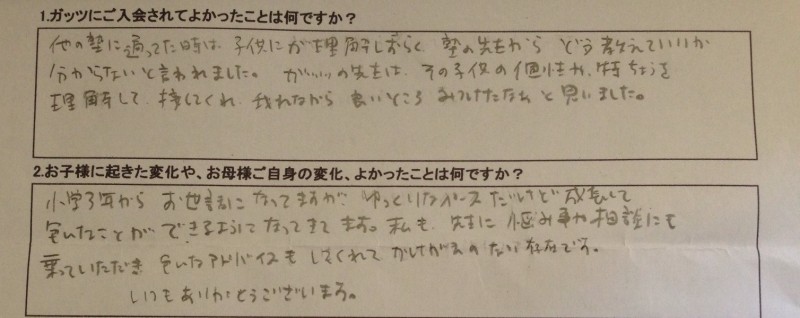 1.ガッツにご入会されてよかったことは何ですか？
他の塾に通ってた時は、子供にが理解しずらく、塾の先生から どう教えていいか
分からないと言われました。ガッツの先生は、その子供の個性や、特ちょうを
理解して、接してくれ、我れながら 良いところ みつけたなぁ と思いました。
2.お子様に起きた変化や、お母様ご自身の変化、よかったことは何ですか？
小学3年から お世話になってますが、ゆっくりなペースだけど 成長して
色んなことが できるようになってきてます。私も、先生に 悩み事や相談にも
乗っていただき 色んなアドバイスも してくれて かけがえのない存在です。
いつもありがとうございます。